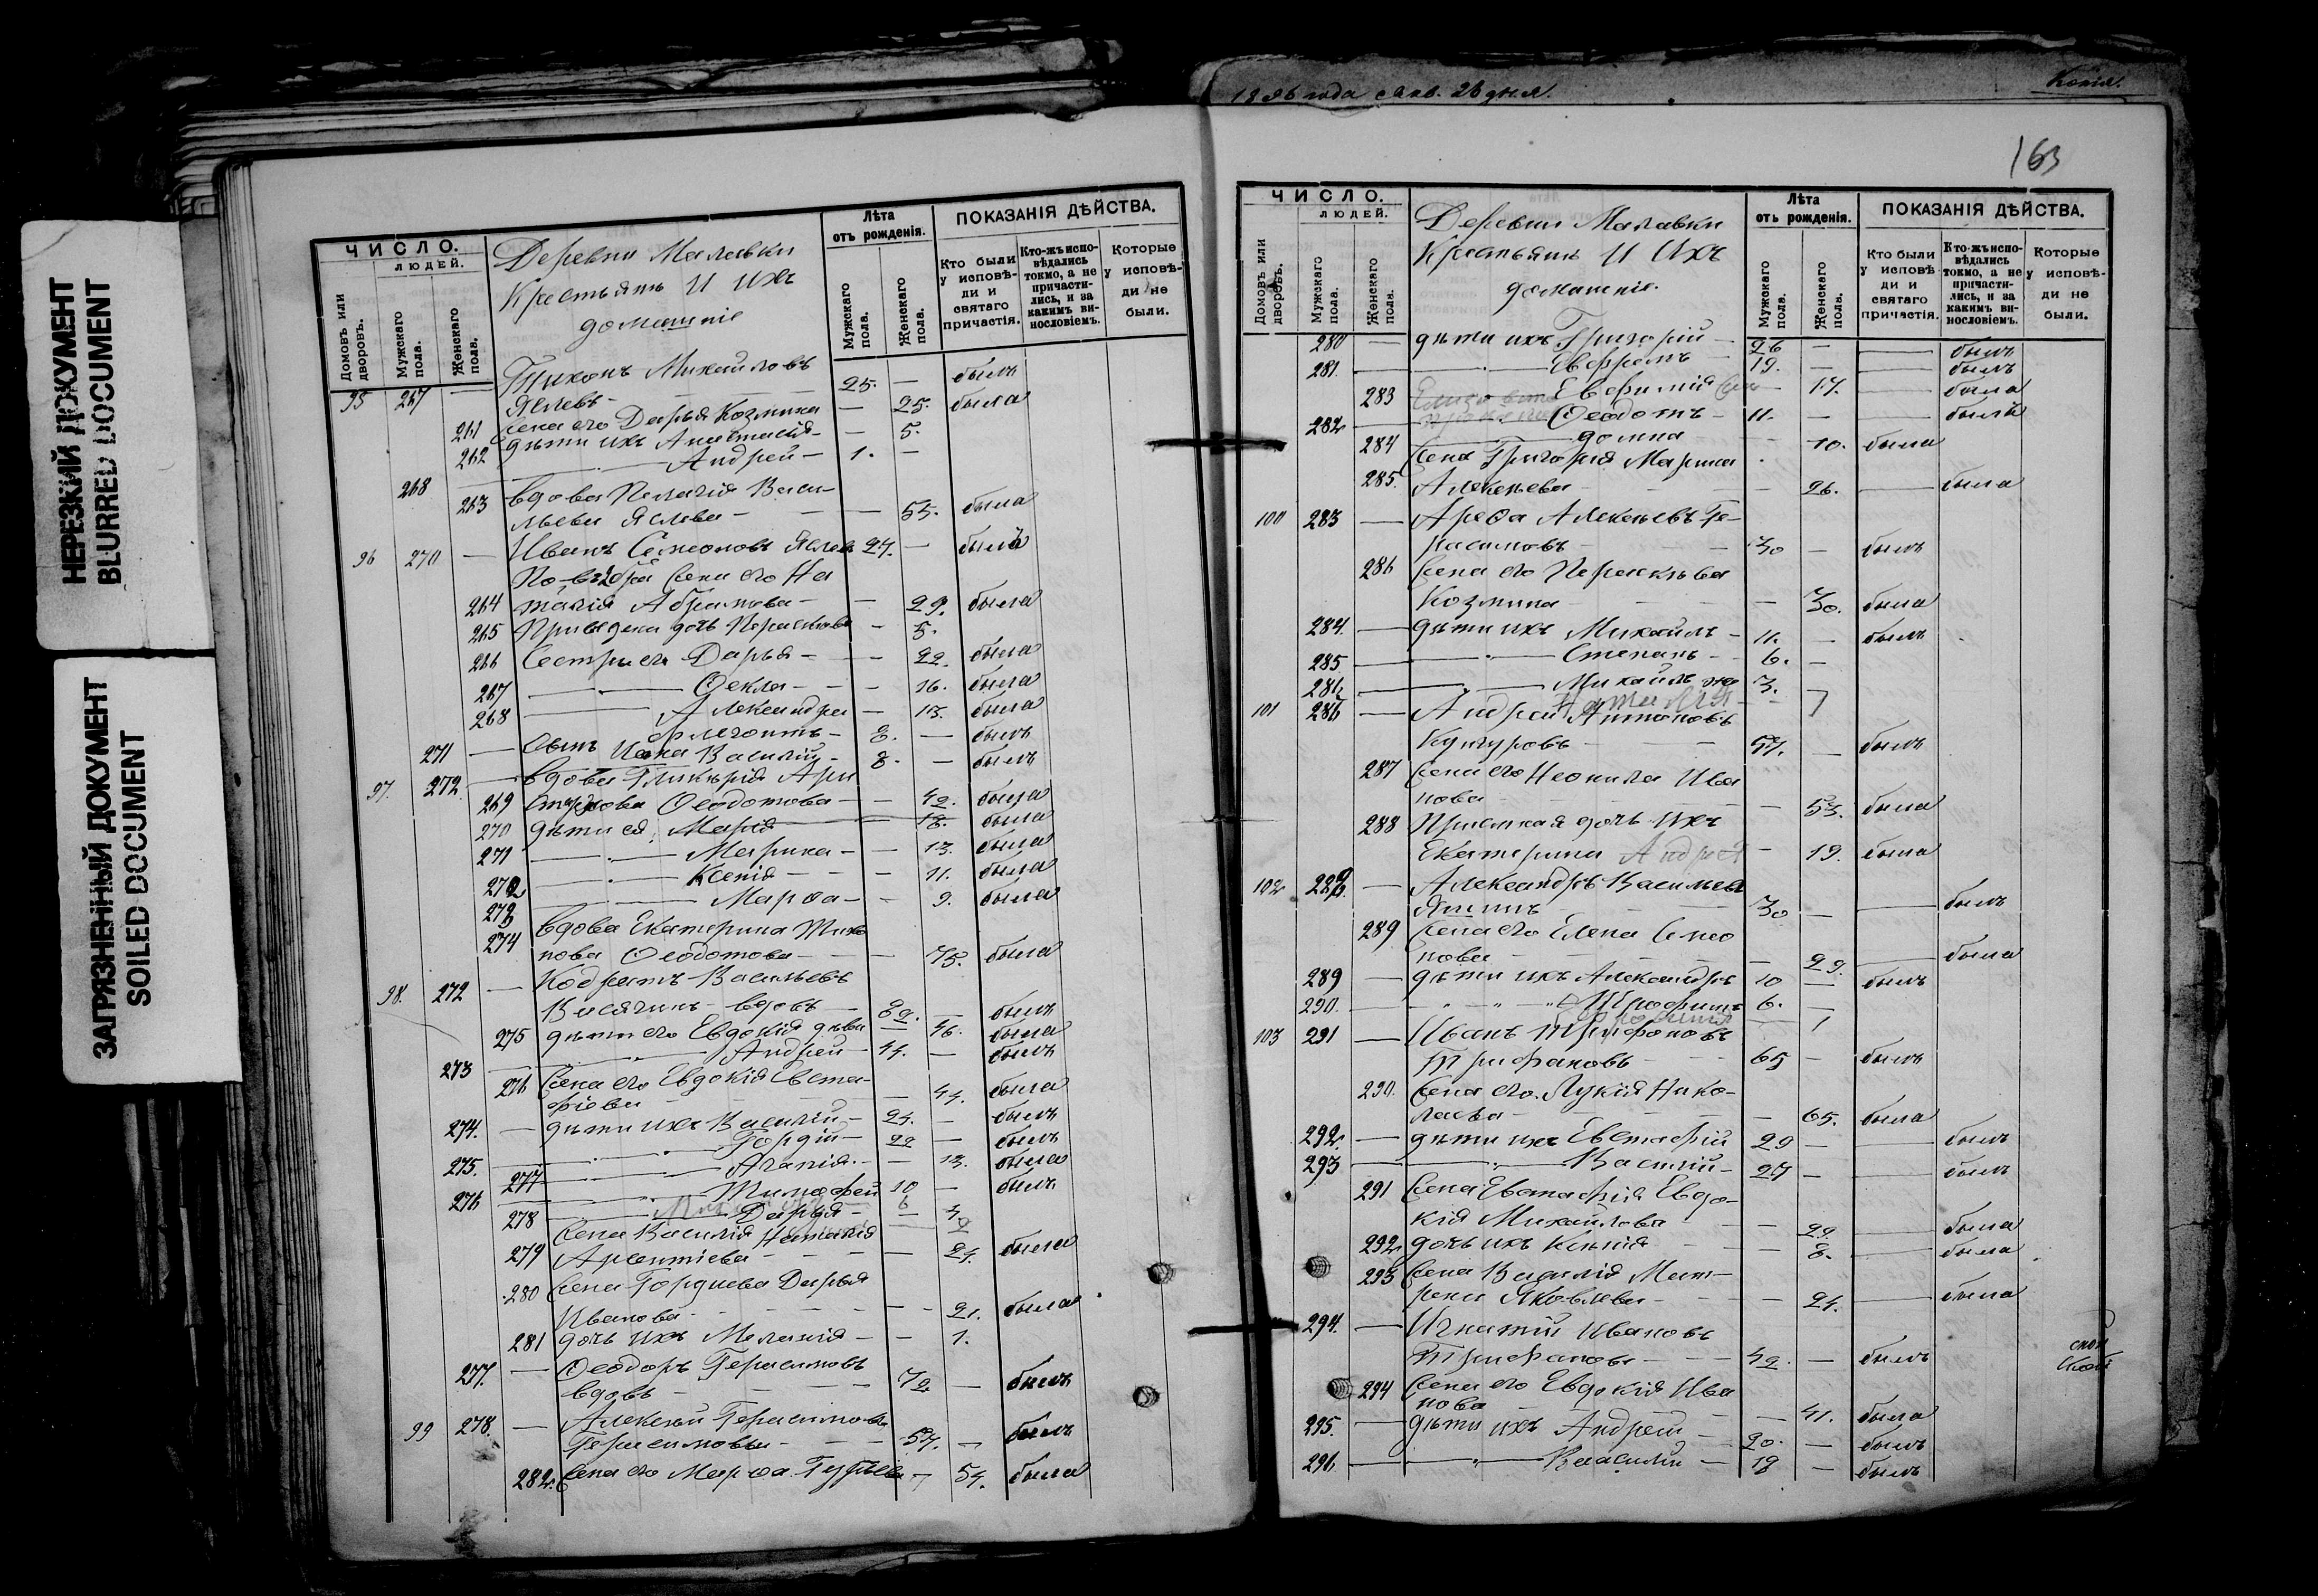 НЕРЕЗКИЙ ДОКУМЕНТ
BLURRED DOCUMENT
ЗАГРЯЗНЕННЫЙ ДОКУМЕНТ
SOILED DOCUMENT
ЧИСЛО.
ЛЮДЕЙ.
Домовъ или дворовъ.
Мужскаго пола.
Женскаго пола.
Деревни Малавки
Крестьянъ И ихъ
домашніе
Лѣта
отъ рожденія.
Мужскаго пола.
Женскаго пола.
ПОКАЗАНІЯ ДѢЙСТВА.
Кто были у исповѣди и святаго причастія.
Кто-жъ исповѣдались токмо, а не причастились, и за какимъ винословіемъ.
Которые у исповѣди не были.
95 267 — Тихонъ Михайловъ
Яглевъ — 25. — былъ
261 Жена его Дарья Козмина — 25. была
262 дѣти ихъ Анастасія — 5.
268 Андрей — 1. —
263 Вдова Пелагія Васи-
льева Яглева — 55. была
96 270 — Иванъ Семеоновъ Яглев 27. — былъ
Жена его На
264 талія Абрамова — 29. была
265 дочь Параскева — 5.
266 Сестры его Дарья — 22. была
267 Ѳекла — 16. была
268 Александра — 13. была
271 — 8. — былъ
Василій — 8. — былъ
97. 272 — Вдова Гликерія Ари
269 Ѳеодотова — 42. была
270 дѣти ея: Марія — 18. была
271 Марина — 13. была
272 Ксенія — 11. была
273 Марѳа — 9. была
274 Вдова Екатерина Тихо
нова Ѳеодотова — 75. была
98. 272 — Кодратъ Васильевъ
вдовъ — 82. — былъ
275 дѣти его Евдокія дѣви 46. была
273 Андрей — 44. — былъ
276 Жена его Евдокія Евста-
фіева — 44. была
274. — дѣти ихъ Василій — 24. — былъ
275. Гордій — 22 — былъ
277 Агапія. — 13. была
276 Тимофей 10 — былъ
278 Дарья — 4
Жена Василія Наталія
279 — 24. была
280 Жена Гордиева Дарья
Иванова — 21. была
281 дочь ихъ Меланія — 1.
277. — Ѳеодоръ Герасимовъ
вдовъ — 72 — былъ
99 278. — Алексѣй Герасимовъ
Герасимовъ — 57. — былъ
282. Жена его Марѳа Гурьева — 54. была
1896 года 26 дня.
Копія.
163
ЧИСЛО.
ЛЮДЕЙ.
Домовъ или дворовъ.
Мужскаго пола.
Женскаго пола.
Деревни Малавки
Крестьянъ И ихъ
домашніе.
Лѣта
отъ рожденія.
Мужскаго пола.
Женскаго пола.
ПОКАЗАНІЯ ДѢЙСТВА.
Кто были у исповѣди и святаго причастія.
Кто-жъ исповѣдались токмо, а не причастились, и за какимъ винословіемъ.
Которые у исповѣди не были.
280 — дѣти ихъ Григорій — 26 — былъ
281. Ефремъ — 19. — былъ
283 Евфимія — 17. — была
282 Ѳеодотъ — 11. — былъ
284 домна — 10. была
Жена Григорія Марина
285. Алексѣева — 26. — была
100 283 — Арефа Алексѣевъ Ге-
расимовъ — 30 — былъ
286 Жена его Параскѣва
Козмина — 30. была
284. — дѣти ихъ Михаилъ — 11. — былъ
285 Степанъ — 6. —
286 Михаилъ же 3. —
101 286 — Андрей Антоновъ
57. — былъ
287 Жена его Неонила Ива
нова — 53. была
288 Приемная дочь ихъ
Екатерина — 19. была
102 — Александръ Васильев
Яшинъ — 30 — былъ
289 Жена его Елена Семео
нова — 29. — была
289 — дѣти ихъ Александръ 10 — былъ
290. Трофимъ 6. —
103 291 — Иванъ Трифоновъ
Трифановъ — 65 — былъ
290. Жена его Лукія Нико-
лаева — 65. была
292. — дѣти ихъ Евстафій 29 — былъ
293 Василій — 27 — былъ
291 Жена Евстафія Евдо-
кія Михайлова — 29 — была
292 дочь ихъ Ксенія — 8. — была
293 Жена Василія Мат-
рена Яковлева — 24. — была
294. — Игнатій Ивановъ
Трифановъ — 42. — былъ
294 Жена его Евдокія Ива
нова — 41. была
295. — дѣти ихъ Андрей — 20. — былъ
296 Василій — 18 — былъ